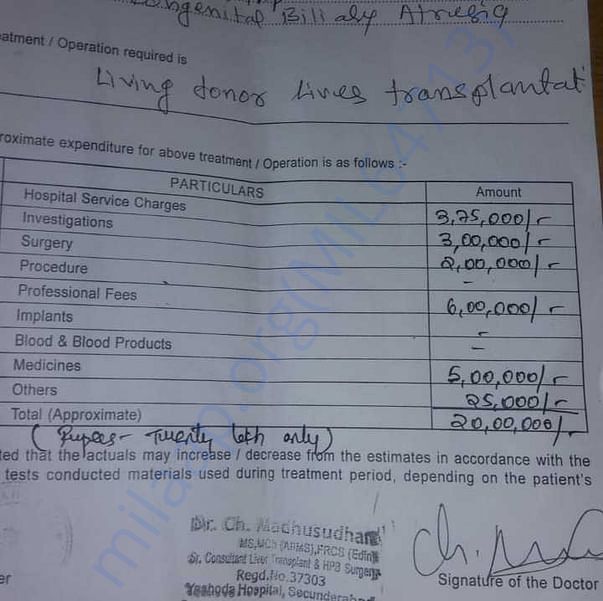 ongenital Billaly Atresia
eatment / Operation required is
Living donor lives transplantat
roximate expenditure for above treatment / Operation is as follows :-
PARTICULARS Amount
Hospital Service Charges 3,75,000/-
Investigations 3,00,000/-
Surgery 2,00,000/-
Procedure -
Professional Fees 6,00,000/-
Implants -
Blood & Blood Products -
Medicines 5,00,000/-
Others 25,000/-
Total (Approximate) 20,00,000/-
(Rupees - Twenty lakh only)
ted that the actuals may increase / decrease from the estimates in accordance with the
tests conducted materials used during treatment period, depending on the patient's
Dr. Ch. Madhusudhan
MS, MCh (AIIMS), FRCS (Edin)
Sr. Consultant Liver Transplant & HPB Surgery
Regd.No.37303
Yashoda Hospital, Secunderabad
Ch.
er
Signature of the Doctor
milaap.org(MIL647137)